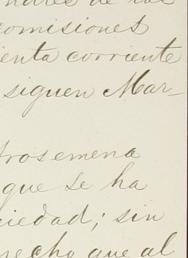 comisiones
enta corriente
siguen Mar-
rosemena
que se ha
ciedad; sin
echo que al